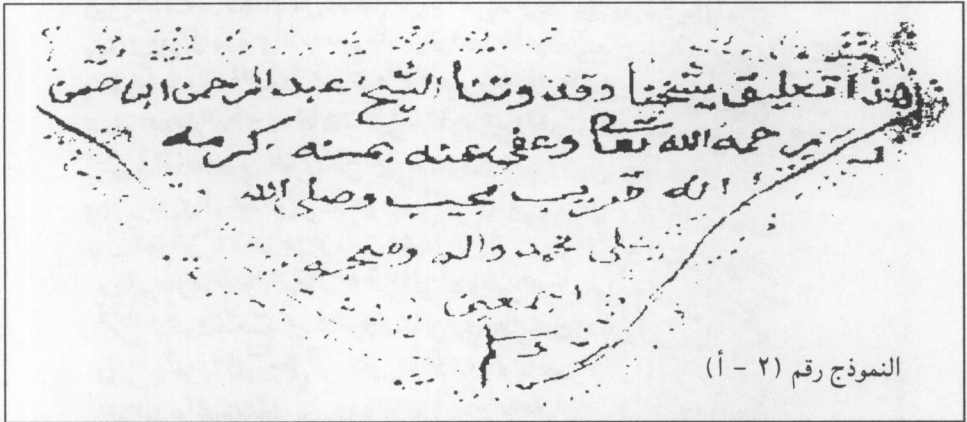 هذا تعليق شيخنا وقدوتنا الشيخ عبد الرحمن ابن حسن
رحمه الله تعا وعفى عنه بمنه وكرمه
الله قريب مجيب وصلى الله
على محمد واله وصحبه
اجمعين
النموذج رقم (٢ - أ)